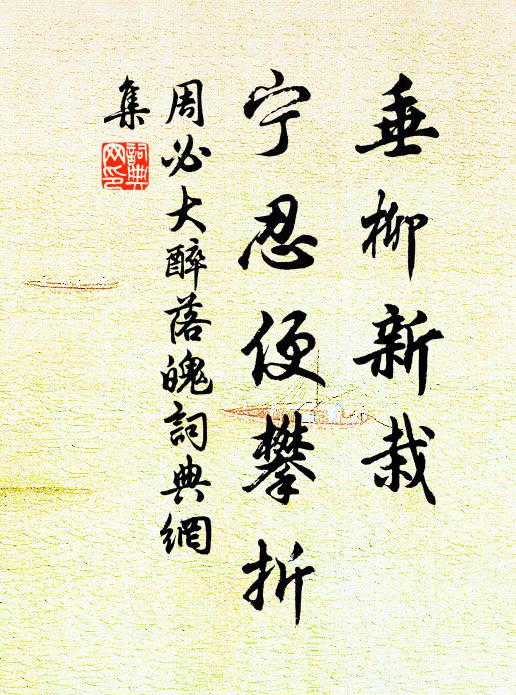 垂柳新栽
宁忍便攀折
周必大醉落魄詞典網
集
詞典
网印